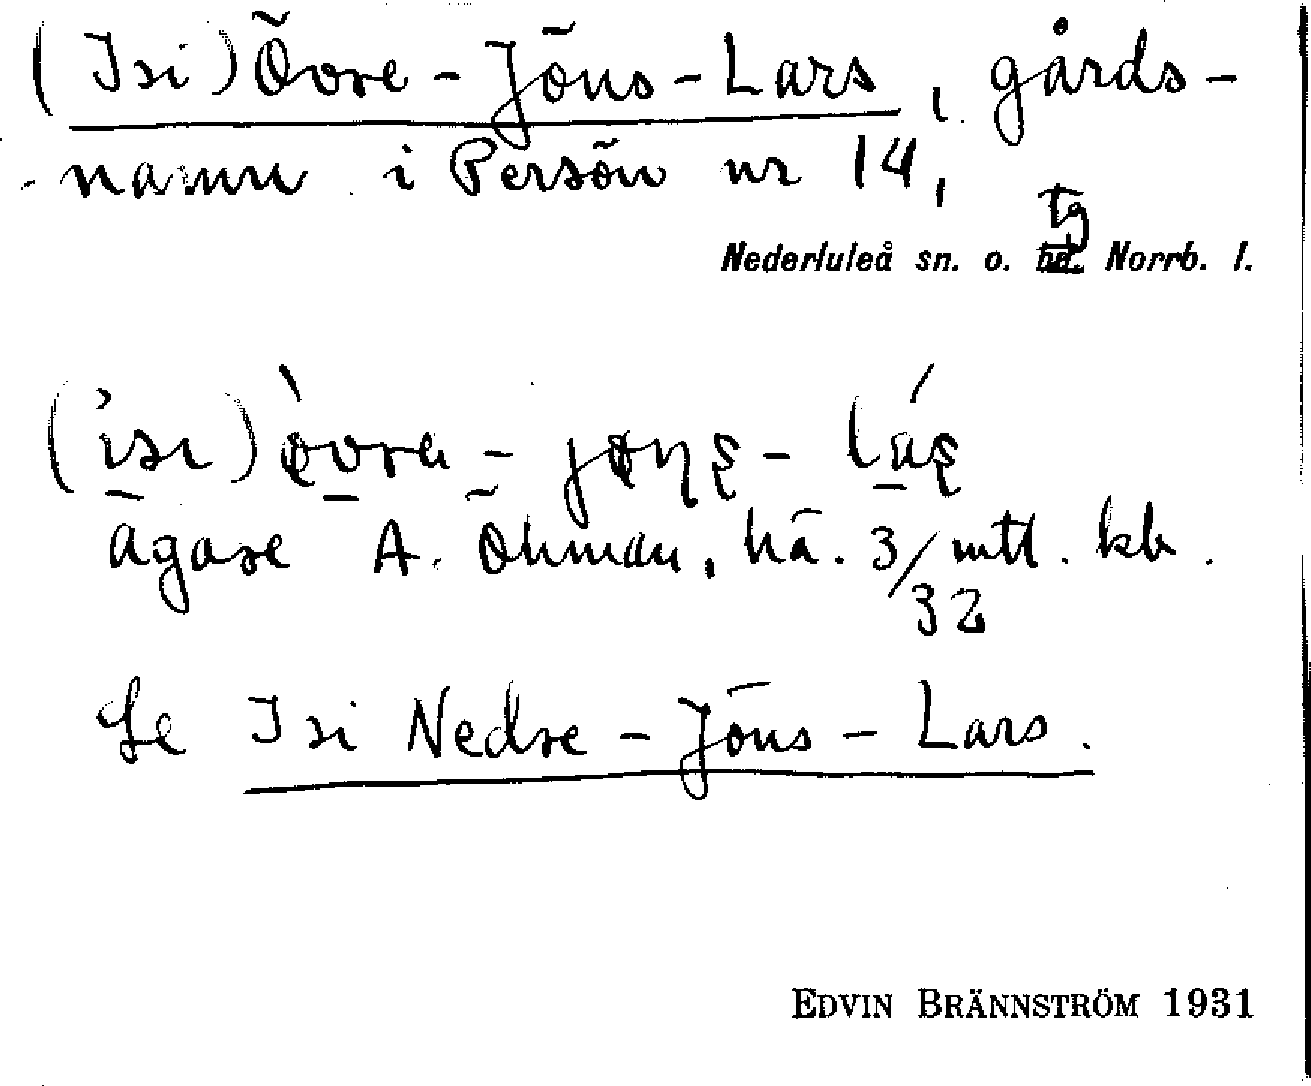 (Isi) Övre - Jöns - Lars, gårds-
namn i Persön nr 14,
tg
Nederluleå sn. o. hd. Norrb. l.
ägare A. Öhman, hä. 3/32 mtl. kb.
Se Isi Nedre - Jöns - Lars.
EDVIN BRÄNNSTRÖM 1931